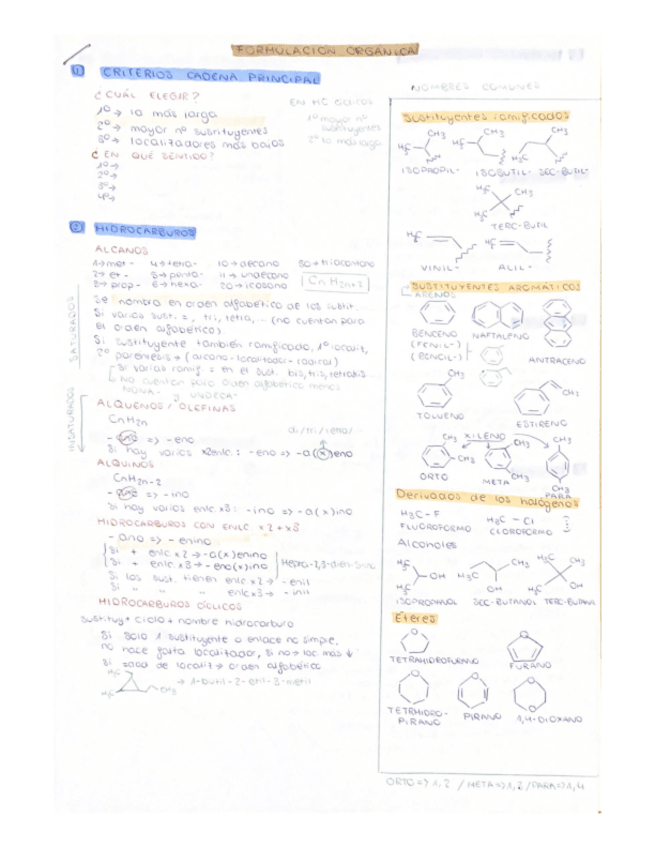 FORMULACIÓN ORGÁNICA
1 CRITERIOS CADENA PRINCIPAL
¿CUÁL ELEGIR?
1º→ la más larga
2º→ mayor nº sustituyentes
3º→ localizadores más bajos
EN HC CÍCLICOS
1º mayor nº
sustituyentes
2º la más larga
¿EN QUÉ SENTIDO?
1º→
2º→
3º→
4º→
2 HIDROCARBUROS
ALCANOS
1→met- 4→tetra- 10→decano 30→triacontano
2→et- 5→penta- 11→undecano
3→prop- 6→hexa- 20→icosano
CnH2n+2
SATURADOS
Se nombra en orden alfabético de los sustit.
Si varios sust. =, tri, tetra,... (no cuentan para
el orden alfabético)
Si sustituyente también ramificado, 1º localit,
2º paréntesis → (alcano-localitador-radical)
Si varias ramif. = en el sust. bis, tris, tetrakis...
No cuentan para orden alfabético menos
NONA- y UNDECA-
INSATURADOS
ALQUENOS / OLEFINAS
CnH2n
-ano => -eno
di/tri/tetra/...
Si hay varios x2enlc.: -eno => -a(x)eno
ALQUINOS
CnH2n-2
-ano => -ino
Si hay varios enlc x3: -ino => -a(x)ino
HIDROCARBUROS CON ENLC x2 + x3
-ano => -enino
Si + enlc x2 → -a(x)enino
Si + enlc x3 → -eno(x)ino
Si los sust. tienen enlc x2 → -enil
" " " " enlc x3 → -inil
HIDROCARBUROS CÍCLICOS
Sustituy + ciclo + nombre hidrocarburo
Si solo 1 sustituyente o enlace no simple,
no hace falta localizador, si no → loc. más ↓
Si = localit → orden alfabético
H3C
H3C
CH3
→ 1-butil-2-etil-3-metil
NOMBRES COMUNES
Sustituyentes ramificados
CH3 CH3 CH3
H3C H3C H3C
ISOPROPIL- ISOBUTIL- SEC-BUTIL-
H3C CH3
H3C
TERC-BUTIL
H2C H2C
VINIL- ALIL-
SUSTITUYENTES AROMÁTICOS
ARENOS
BENCENO NAFTALENO
(FENIL-)
(BENCIL-)
ANTRACENO
CH3
CH2
TOLUENO ESTIRENO
XILENO
CH3 CH3 CH3
CH3 CH3
CH3
ORTO META PARA
Derivados de los halógenos
H3C-F H3C-Cl
FLUOROFORMO CLOROFORMO
Alcoholes
CH3 CH3 H3C CH3
OH H3C
H3C OH OH
ISOPROPANOL SEC-BUTANOL
Éteres
O O
TETRAHIDROFURANO FURANO
O O O
O
TETRAHIDRO-
PIRANO PIRANO 1,4-DIOXANO
ORTO=>1,2 / META=>1,3 / PARA=>1,4